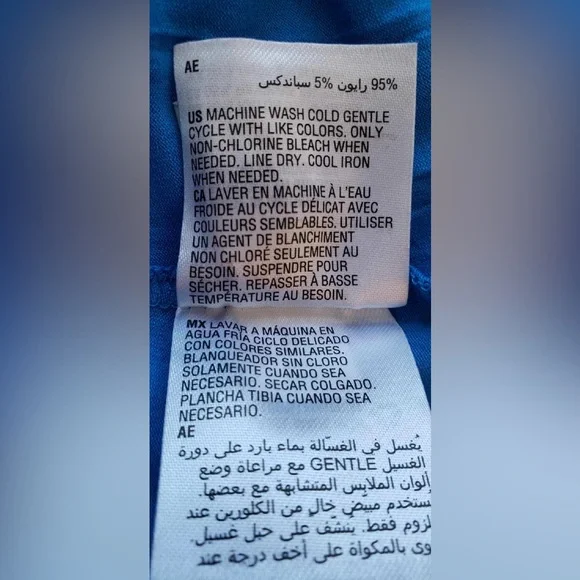 AE
95% رايون 5% سباندكس
US MACHINE WASH COLD GENTLE
CYCLE WITH LIKE COLORS. ONLY
NON-CHLORINE BLEACH WHEN
NEEDED. LINE DRY. COOL IRON
WHEN NEEDED.
CA LAVER EN MACHINE À L'EAU
FROIDE AU CYCLE DÉLICAT AVEC
COULEURS SEMBLABLES. UTILISER
UN AGENT DE BLANCHIMENT
NON CHLORÉ SEULEMENT AU
BESOIN. SUSPENDRE POUR
SÉCHER. REPASSER À BASSE
TEMPÉRATURE AU BESOIN.
MX LAVAR A MÁQUINA EN
AGUA FRÍA CICLO DELICADO
CON COLORES SIMILARES.
BLANQUEADOR SIN CLORO
SOLAMENTE CUANDO SEA
NECESARIO. SECAR COLGADO.
PLANCHA TIBIA CUANDO SEA
NECESARIO.
AE
يُغسل في الغسّالة بماء بارد على دورة
الغسيل GENTLE مع مراعاة وضع
ألوان الملابس المتشابهة مع بعضها.
خالٍ من الكلورين عند
فقط. يُنشّف على حبل غسيل.
بالمكواة على أخف درجة عند